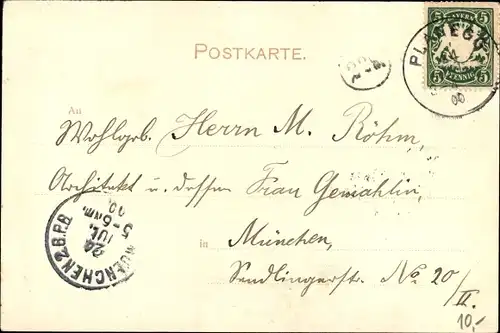 POSTKARTE.
BAYERN
5 5
PFENNIG
PLANEGG
00
An
Wohlgeb. Herrn M. Röhm,
Architekt u. dessen Frau Gemahlin,
in München,
Sendlingerstr. No 20/
II.
10,-
MUENCHEN 2 B.P.B.
24
JUL.
5-6 NM.
00.